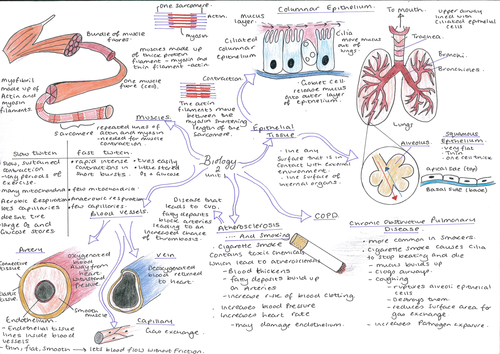 Bundle of muscle
fibres.
one sarcomere.
Actin.
myosin
muscles made up
of thick protein
filament - myosin and
thin filament - actin
Contraction
The actin
filaments move
between the
myosin shortening
length of the
sarcomere.
Myofibril
made up of
Actin and
myosin
filaments.
one muscle
fibre (cell).
Sarcomere
repeated units of
actin and myosin
needed for muscle
contraction.
Muscles
Columnar Epithelium.
mucus
layer
Ciliated
columnar
epithelium
Cilia
move mucus
out of
lungs.
Goblet cell
release mucus
onto outer layer
of epithelium.
To mouth.
upper airway
lined with
ciliated epithelial
cells
Trachea
Bronchi.
Bronchioles.
Lungs
Epithelial
Tissue
line any
surface that is in
contact with external
environment.
line surface of
internal organs.
Alveolus.
Squamous
epithelium
very flat
Thin
one cell thick
apical side (top)
Basal side (base)
Biology
unit 2
Slow twitch
slow, sustained
contraction
long periods of
exercise.
many mitochondria
Aerobic Respiration
lots capillaries
doesn't tire
large O2 and
Glucose stores
fast twitch.
rapid intense
contractions in
short bursts
few mitochondria
anaerobic respiration
few capillaries.
tires easily
little stored
O2 + Glucose
Blood vessels.
Artery
Connective
tissue
Elastic
tissue
Oxygenated
blood
Away from
heart
High blood
pressure
Smooth
muscle
Endothelium
- Endothelial tissue
lines inside blood
vessels
- thin, flat, smooth → lets blood flow without friction.
Vein.
Deoxygenated
blood returned
to heart
Capillary
Gas exchange.
Disease that
leads to CVD,
fatty deposits
block arteries
leading to an
increased chance
of thrombosis.
Atherosclerosis
.... And Smoking
Cigarette smoke
Contains toxic chemicals
which lead to atherosclerosis
- Blood thickens
- fatty deposits build up
on Arteries
- increase risk of blood clotting.
Increase blood pressure
Increase heart rate
- may damage endothelium.
COPD.
Chronic Obstructive Pulmonary
Disease.
more common in smokers.
Cigarette smoke causes cilia
to stop beating and die
mucus builds up
Clogs airways
Coughing
- ruptures alveoli epithelial
cells
- Destroys them
- reduces surface area for
gas exchange
Increased Pathogen exposure.